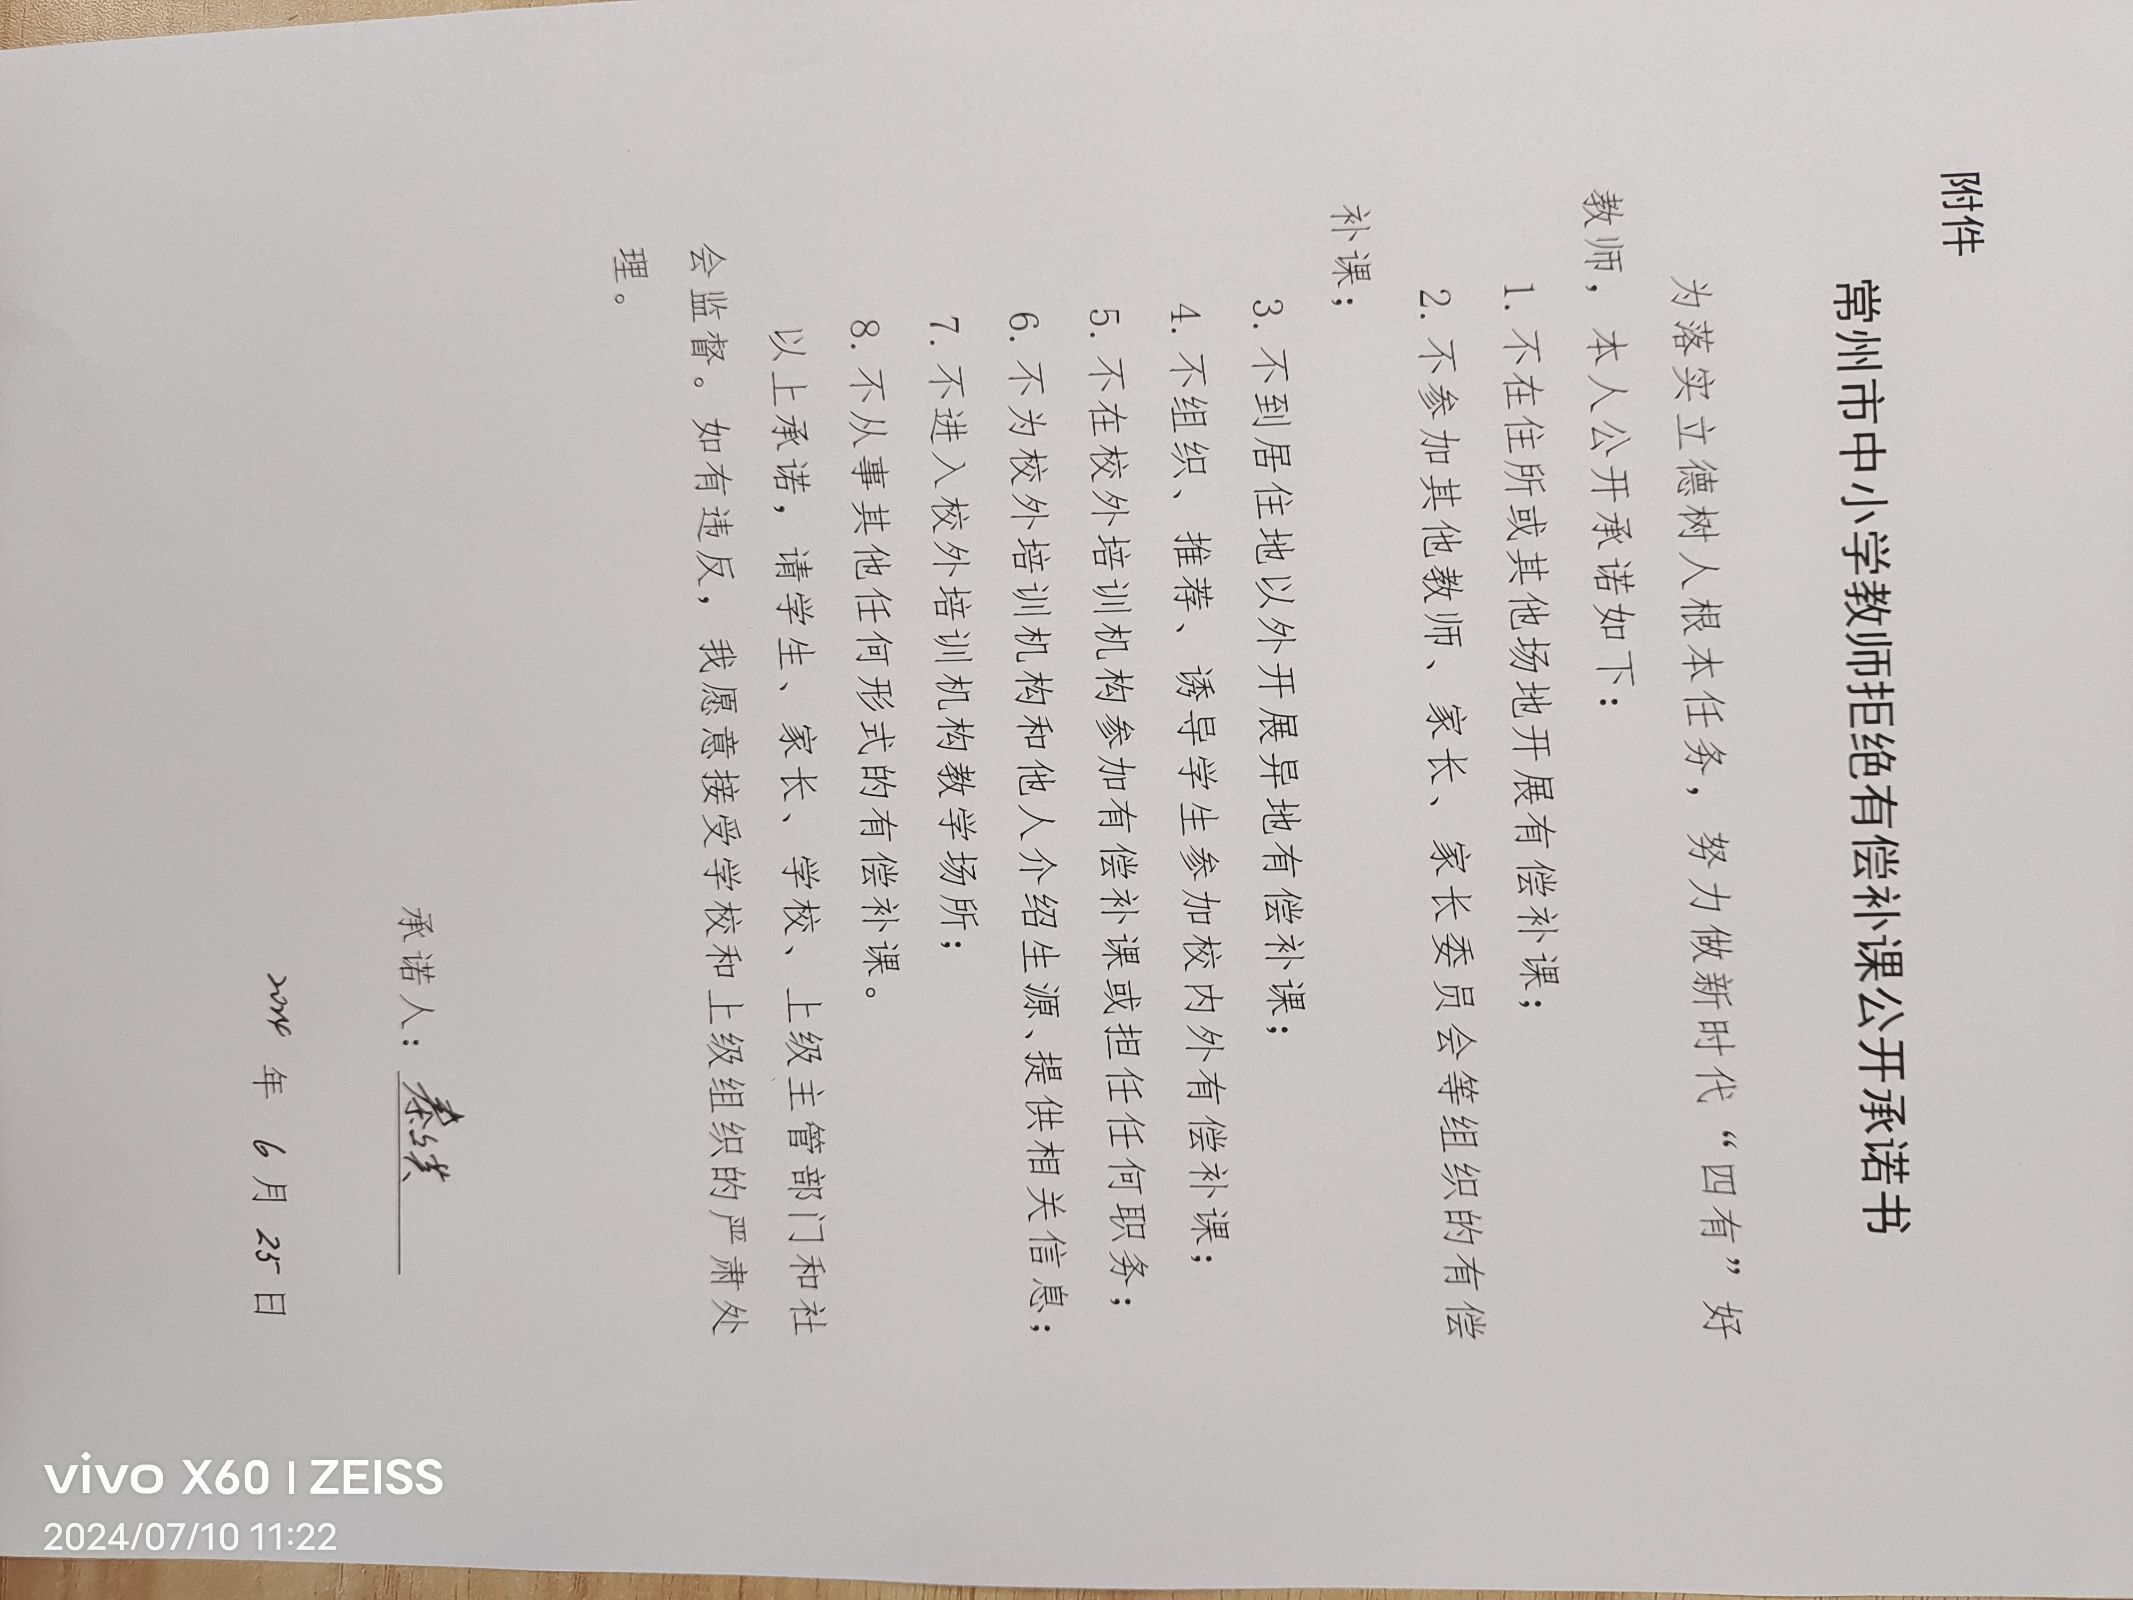 附件
常州市中小学教师拒绝有偿补课公开承诺书
为落实立德树人根本任务，努力做新时代“四有”好
教师，本人公开承诺如下：
1.不在住所或其他场地开展有偿补课；
2.不参加其他教师、家长、家长委员会等组织的有偿
补课；
3.不到居住地以外开展异地有偿补课；
4.不组织、推荐、诱导学生参加校内外有偿补课；
5.不在校外培训机构参加有偿补课或担任任何职务；
6.不为校外培训机构和他人介绍生源、提供相关信息；
7.不进入校外培训机构教学场所；
8.不从事其他任何形式的有偿补课。
以上承诺，请学生、家长、学校、上级主管部门和社
会监督。如有违反，我愿意接受学校和上级组织的严肃处
理。
承诺人：
2024 年 6 月 25 日
vivo X60 | ZEISS
2024/07/10 11:22